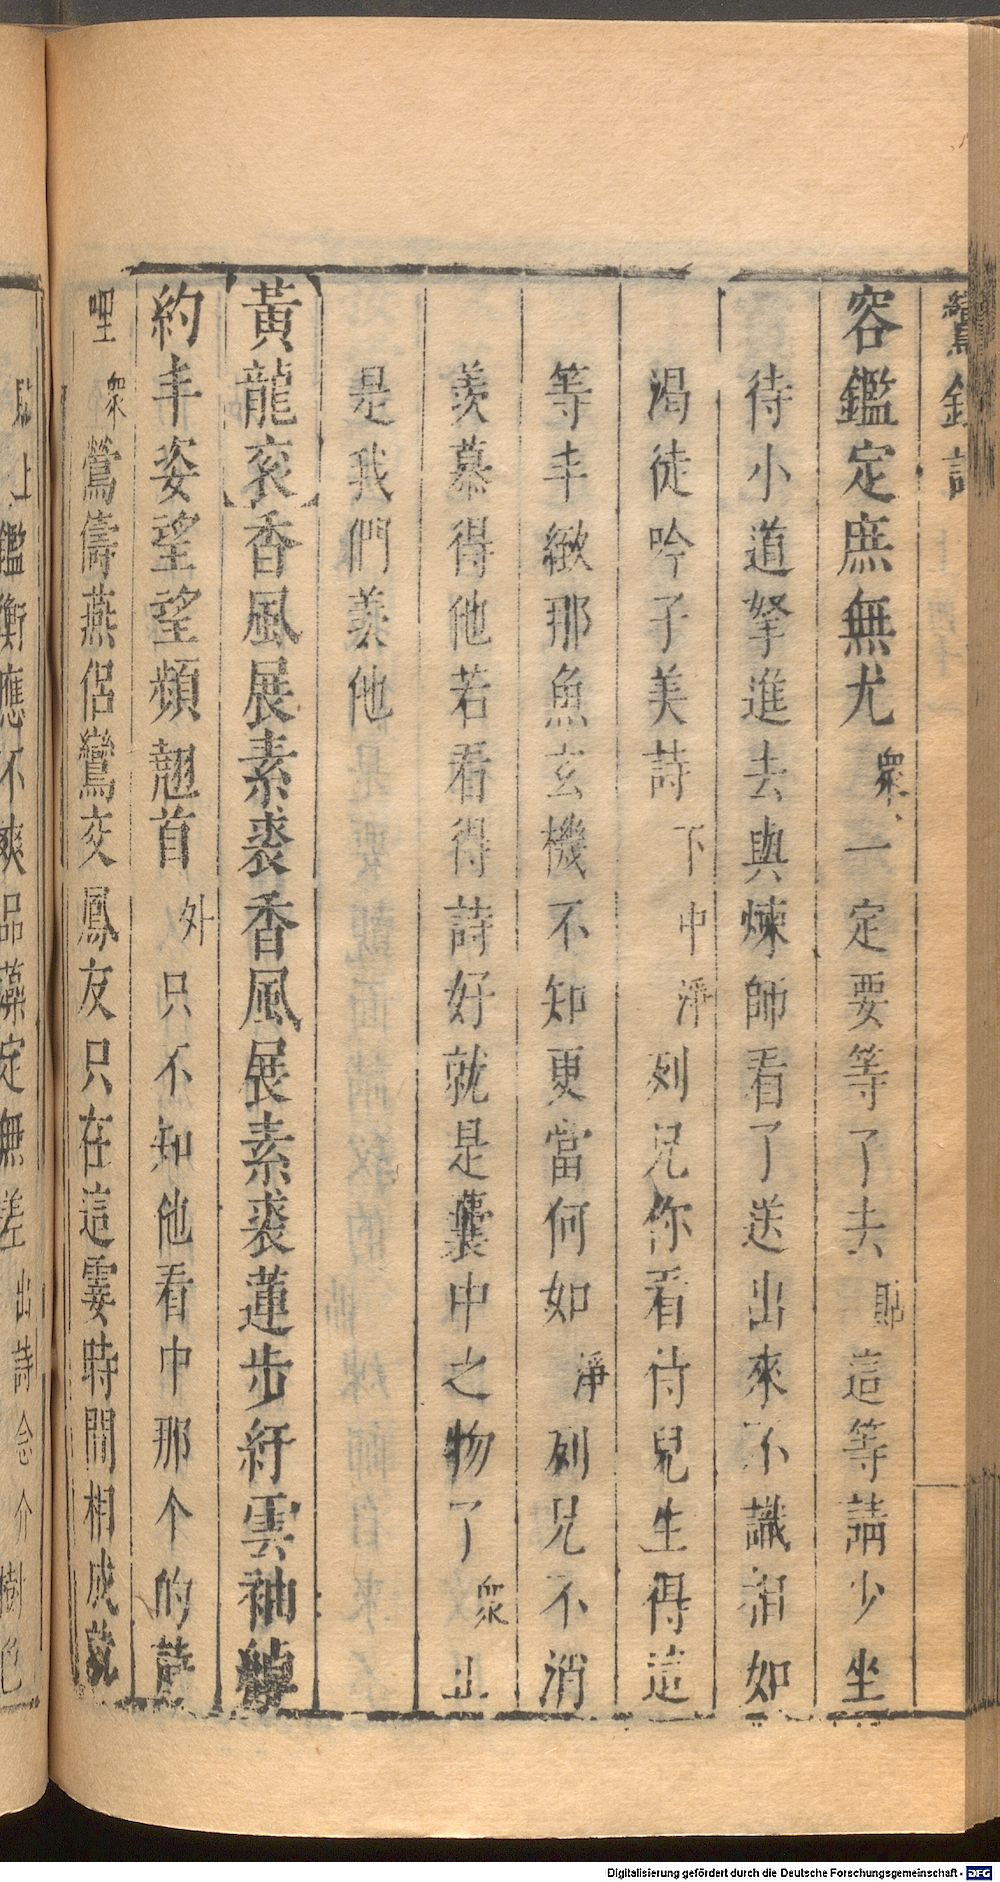 容鑑定庶無尤 衆 一定要等了去 貼 這等請少坐
待小道拏進去與煉師看了送出來不識相如
渴徒吟子美詩 下 中 淨 列兄你看待兒生得這
等丰緻那魚玄機不知更當何如 淨 列兄不消
羨慕得他若看得詩好就是囊中之物了 衆 止
是我們羨他
【黃龍衮】香風展素裘香風展素裘蓮步紆雲袖綽
約丰姿望望頻翹首 外 只不知他看中那个的詩
哩 衆 鶯儔燕侶鸞交鳳友只在這霎時間相成就
貼 上 鑑衡應不爽品藻定無差 出詩念介 樹色
Digitalisierung gefördert durch die Deutsche Forschungsgemeinschaft - DFG